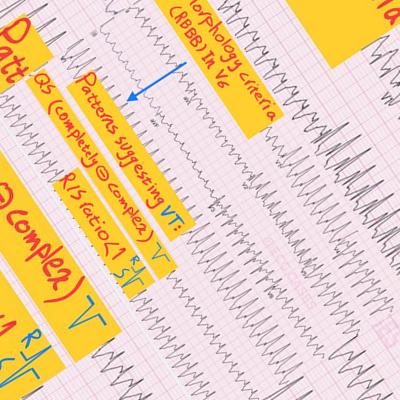 Patt
orphology criteria
(RBBB) In V6
Patterns suggesting VT:
QS (completely ⊖ complex)
R/S ratio <1
R
S
⊖ complex)
R